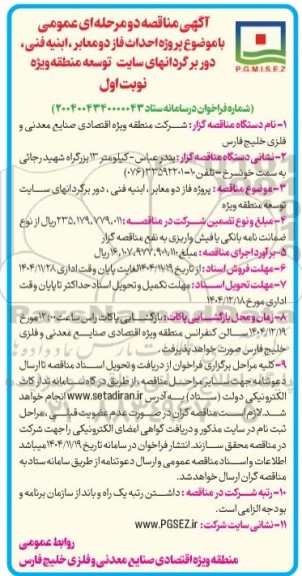 آگهی مناقصه دو مرحله ای عمومی
با موضوع پروژه احداث فاز دو معابر ، ابنیه فنی ،
دور بر گردانهای سایت توسعه منطقه ویژه
نوبت اول
P.G.M.I.S.E.Z
(شماره فراخوان در سامانه ستاد ۲۰۰۴۰۰۴۳۴۰۰۰۰۰۴۳)
۱- نام دستگاه مناقصه گزار : شرکت منطقه ویژه اقتصادی صنایع معدنی و
فلزی خلیج فارس
۲- نشانی دستگاه مناقصه گزار: بندر عباس - کیلومتر ۱۳ بزرگراه شهید رجائی
به سمت خونسرخ - تلفن ۱۰-۳۳۵۹۲۲۰۱ (۰۷۶)
۳- موضوع مناقصه : پروژه فاز دو معابر ، ابنیه فنی ، دور برگردانهای سایت
توسعه منطقه ویژه
۴- مبلغ و نوع تضمین شرکت در مناقصه : ۲۳۵,۱۷۹,۷۷۹,۰۱۱ ریال از نوع
ضمانت نامه بانکی یا فیش واریزی به نفع مناقصه گزار
۵- برآورد اجرای مناقصه: مبلغ ۱۴,۱۰۷,۹۷۷,۹۰۱,۱۱۰ ریال
۶- مهلت فروش اسناد : از تاریخ ۱۴۰۴/۱۱/۱۹ لغایت پایان وقت اداری ۱۴۰۴/۱۱/۲۸
۷- مهلت تحویل اسناد : مهلت تکمیل و تحویل اسناد حداکثر تا پایان وقت
اداری مورخ ۱۴۰۴/۱۲/۱۸
۸- زمان و محل بازگشایی پاکات : بازگشایی پاکات راس ساعت ۱۳:۰۰ مورخ
۱۴۰۴/۱۲/۱۹ سالن کنفرانس منطقه ویژه اقتصادی صنایع معدنی و فلزی
خلیج فارس صورت خواهد پذیرفت .
۹- کلیه مراحل برگزاری فراخوان از دریافت و تحویل اسناد مناقصه تا ارسال
دعوتنامه جهت سایر مراحل مناقصه ، از طریق درگاه سامانه تدارکات
الکترونیکی دولت (ستاد) به آدرس www.setadiran.ir انجام خواهد
شد. لازم است مناقصه گران در صورت عدم عضویت قبلی ، مراحل
ثبت نام در سایت مذکور و دریافت گواهی امضای الکترونیکی را جهت شرکت
در مناقصه محقق سازند. انتشار فراخوان در سامانه تاریخ ۱۴۰۴/۱۱/۱۹ میباشد
اطلاعات و اسناد مناقصه عمومی و ارسال دعوتنامه از طریق سامانه ستاد به
مناقصه گران ارسال خواهد شد.
۱۰- رتبه شرکت در مناقصه : داشتن رتبه یک راه و باند از سازمان برنامه و
بودجه الزامی است.
۱۱- نشانی سایت شرکت : www.PGSEZ.ir
روابط عمومی
منطقه ویژه اقتصادی صنایع معدنی و فلزی خلیج فارس